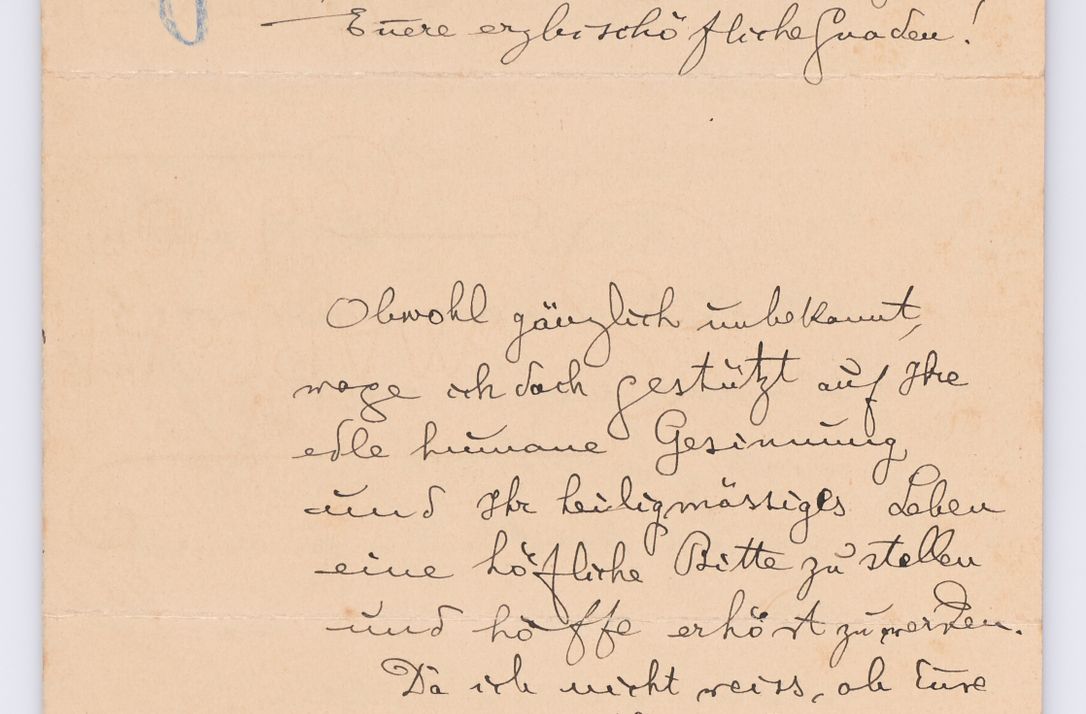 Euere erzbischöfliche Gnaden!
Obwohl gänzlich unbekannt,
wage ich doch gestützt auf Ihre
edle humane Gesinnung
und Ihr heiligmässiges Leben
eine höfliche Bitte zu stellen
und hoffe erhört zu werden.
Da ich nicht weiss, ob Eure